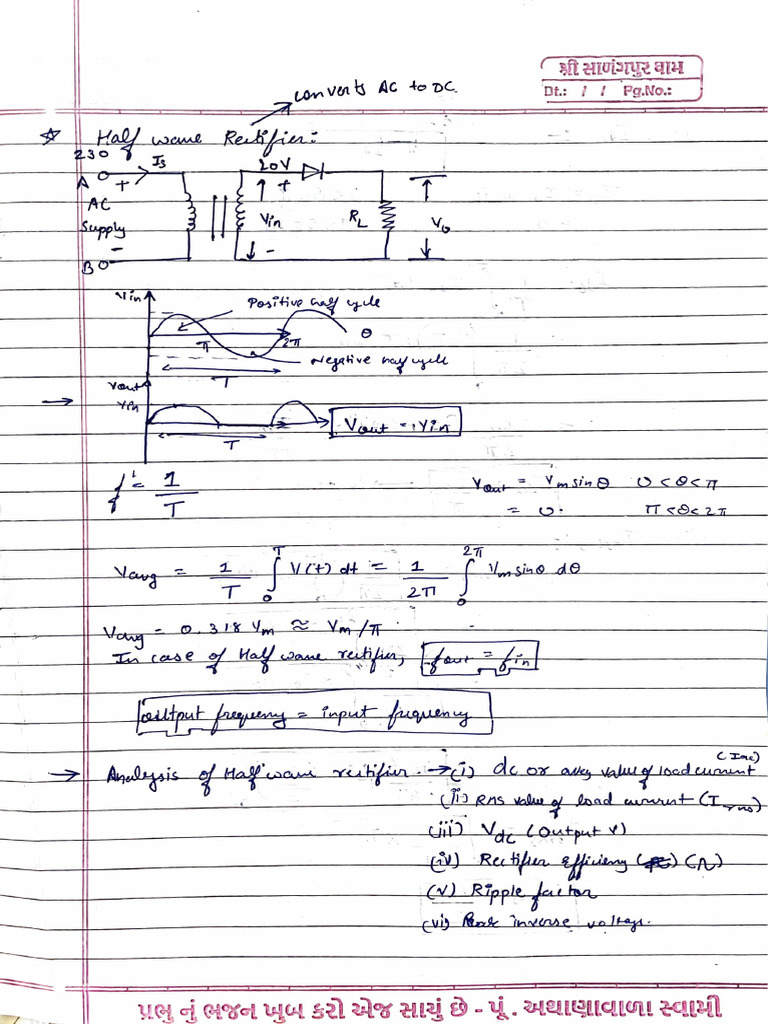 શ્રી સાળંગપુર ધામ
Dt.: / / Pg.No.:
converts AC to DC.
☆ Half wave Rectifier:
230
A Is + 20V +
AC
Supply Vin RL Vo
- -
B
Vin Positive half cycle
π 2π θ
Negative half cycle
T
Vout
→ Vin Vout = Vin
T
f = 1/T
Vout = Vm sinθ 0<θ<π
= 0. π<θ<2π
Vavg = 1/T ∫₀ᵀ V(t) dt = 1/2π ∫₀²π Vm sinθ dθ
Vavg = 0.318 Vm ≈ Vm/π.
In case of Half wave rectifier, fout = fin
output frequency = input frequency
→ Analysis of Half wave rectifier. → (i) dc or avg value of load current
(ii) RMS value of load current (Irms)
(iii) Vdc (Output V)
(iv) Rectifier Efficieny (η)
(v) Ripple factor
(vi) Peak inverse voltage.
પ્રભુ નું ભજન ખુબ કરો એજ સાચું છે - પૂ. અથાણાવાળા સ્વામી